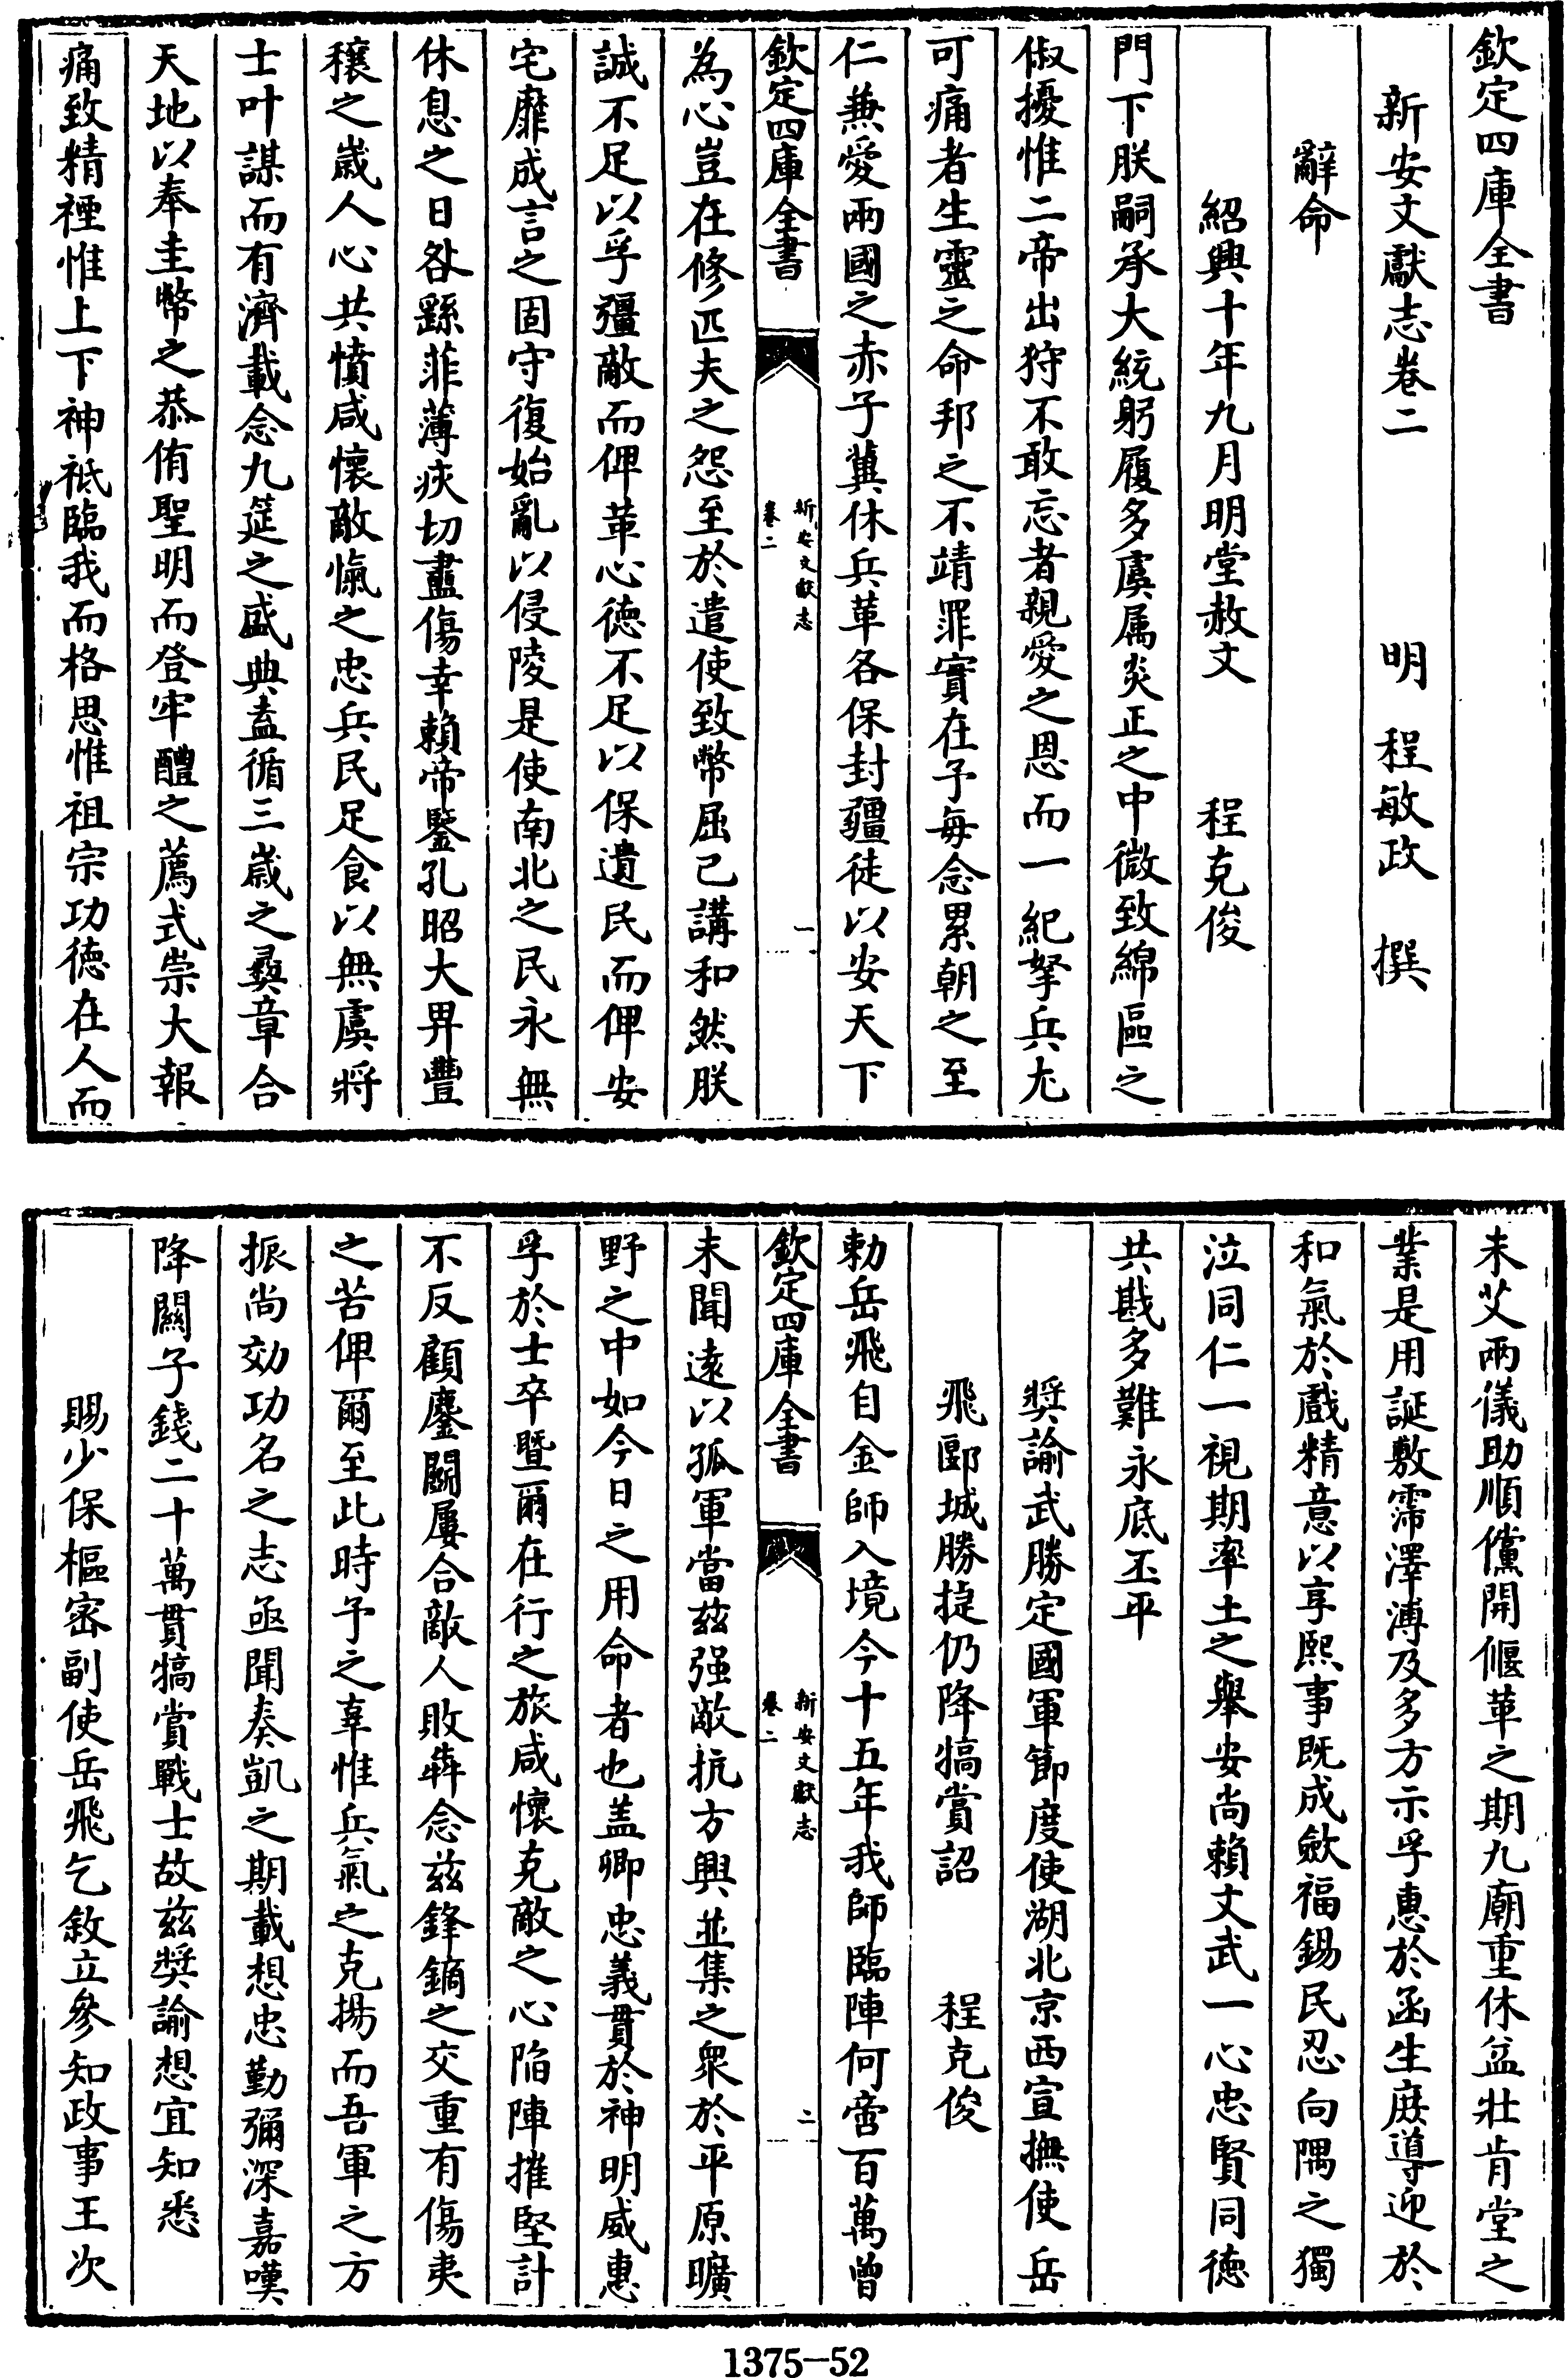 欽定四庫全書
新安文獻志卷二 明 程敏政 撰
辭命
紹興十年九月明堂赦文 程克俊
門下朕嗣承大統躬履多虞屬炎正之中微致綿區之
俶擾惟二帝出狩不敢忘者親愛之恩而一紀拏兵尤
可痛者生靈之命邦之不靖罪實在予每念累朝之至
仁兼愛兩國之赤子冀休兵革各保封疆徒以安天下
欽定四庫全書
新安文獻志
卷二
一
為心豈在修匹夫之怨至於遣使致幣屈己講和然朕
誠不足以孚彊敵而俾革心徳不足以保遺民而俾安
宅靡成言之固守復始亂以侵陵是使南北之民永無
休息之日咎繇菲薄疚切盡傷幸賴帝鑒孔昭大畀豐
穰之歲人心共憤咸懷敵愾之忠兵民足食以無虞將
士叶謀而有濟載念九筵之盛典盍循三歲之彞章合
天地以奉圭幣之恭侑聖明而登牢醴之薦式崇大報
痛致精禋惟上下神祇臨我而格思惟祖宗功徳在人而
未艾兩儀助順儻開偃革之期九廟重休益壯肯堂之
業是用誕敷霈澤溥及多方示孚惠於函生庶導迎於
和氣於戲精意以享熙事既成歛福錫民忍向隅之獨
泣同仁一視期率土之舉安尚賴文武一心忠賢同徳
共戡多難永底丕平
奬諭武勝定國軍節度使湖北京西宣撫使岳
飛郾城勝捷仍降犒賞詔 程克俊
勅岳飛自金師入境今十五年我師臨陣何啻百萬曾
欽定四庫全書
新安文獻志
卷二
二
未聞遠以孤軍當兹强敵抗方興並集之衆於平原曠
野之中如今日之用命者也盖卿忠義貫於神明威惠
孚於士卒暨爾在行之旅咸懷克敵之心陷陣摧堅計
不反顧鏖鬭屢合敵人敗犇念兹鋒鏑之交重有傷夷
之苦俾爾至此時予之辜惟兵氣之克揚而吾軍之方
振尚効功名之志亟聞奏凱之期載想忠勤彌深嘉嘆
降關子錢二十萬貫犒賞戰士故兹奬諭想宜知悉
賜少保樞密副使岳飛乞敘立參知政事王次
1375-52